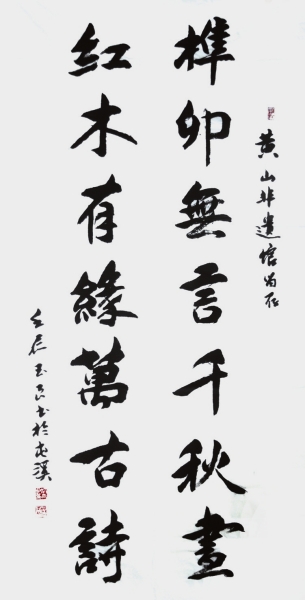 黄山非遺館留存
榫卯無言千秋畫
紅木有緣萬古詩
壬辰玉良书於屯溪